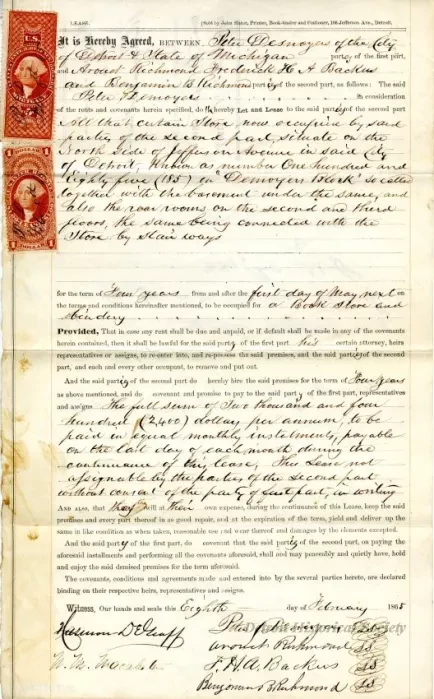 LEASE.
Sold by John Slater, Printer, Book-Binder and Stationer, 166 Jefferson Ave., Detroit.
It is Hereby Agreed, BETWEEN Peter Desnoyers of the City
of Detroit & State of Michigan party of the first part,
and Avoust Richmond Frederick H A Backus
and Benjamin B Richmond parties of the second part, as follows: The said
Peter Desnoyers in consideration
of the rents and covenants herein recited, doth hereby Let and Lease to the said parties of the second part
All that certain Store now occupied by said
parties of the second part, situate on the
North side of Jefferson Avenue in said City
of Detroit, known as number One hundred and
Eighty five (185) in "Desnoyers Block" so called
together with the basement under the same, and
also the rear rooms on the second and third
floors, the same being connected with the
Store by stair ways
for the term of Four years from and after the first day of May next on
the terms and conditions hereinafter mentioned, to be occupied for a Book Store and
bindery
Provided, That in case any rent shall be due and unpaid, or if default shall be made in any of the covenants
herein contained, then it shall be lawful for the said party of the first part his certain attorney, heirs
representatives or assigns, to re-enter into, and re-possess the said premises, and the said parties of the second
part, and each and every other occupant, to remove and put out.
And the said parties of the second part do hereby hire the said premises for the term of Four years
as above mentioned, and do covenant and promise to pay to the said party of the first part, representatives
and assigns The full sum of Two thousand and four
hundred (2,400) dollars per annum, to be
paid in equal monthly instalments, payable
on the last day of each month during the
continuance of this lease, This Lease not
assignable by the parties of the second part
without consent of the party of first part, in writing
And also, that they will at their own expense, during the continuance of this Lease, keep the said
premises and every part thereof in as good repair, and at the expiration of the term, yield and deliver up the
same in like condition as when taken, reasonable use and wear thereof and damages by the elements excepted.
And the said party of the first part, do covenant that the said parties of the second part, on paying the
aforesaid instalments and performing all the covenants aforesaid, shall and may peaceably and quietly have, hold
and enjoy the said demised premises for the term aforesaid.
The covenants, conditions and agreements made and entered into by the several parties hereto, are declared
binding on their respective heirs, representatives and assigns.
Witness, Our hands and seals this Eighth day of February 1865
Peter Desnoyers
Detroit Historical Society
Avoust Richmond LS
F. H. A. Backus LS
Benjamin B. Richmond LS